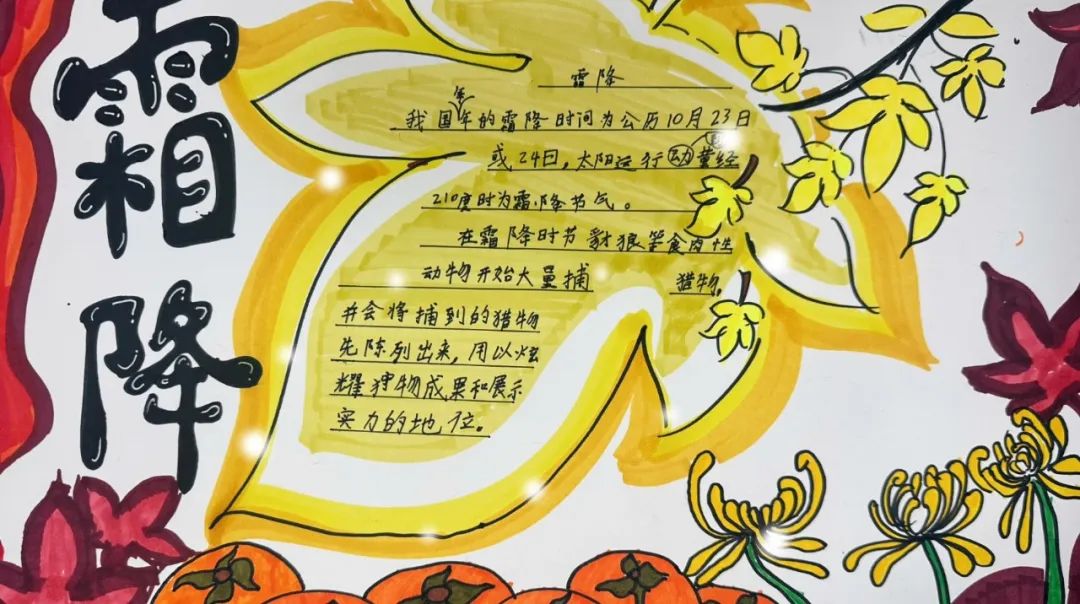 霜
降
霜降
我国年的霜降时间为公历10月23日
或24日，太阳运行动黄经
210度时为霜降节气。
在霜降时节豺狼等食肉性
动物开始大量捕 猎物，
并会将捕到的猎物
先陈列出来，用以炫
耀狩物成果和展示
实力的地位。